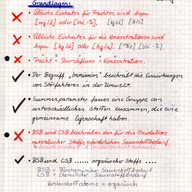 Grundlagen:
Übliche Einheiten für Frachten sind bspw.
[mg/l] oder [Vol.-%]. [kg/d] [t/a]
Übliche Einheiten für die Konzentrationen sind
bspw. [kg/d] oder [kg/a].
Fracht = Durchfluss × Konzentration.
Der Begriff "Immission" beschreibt die Einwirkungen
von Störfaktoren in der Umwelt.
Summenparameter fassen eine Gruppe von
unterschiedlichen Stoffen zusammen, die eine
gemeinsame Eigenschaft haben.
BSB und CSB beschreiben den für die Oxidation
Stoffe erforderlichen Sauerstoffbedarf
BSB und CSB ..... organischer Stoffe ....
BSB = Sauerstoffbedarf
CSB = Chemischer Sauerstoffbedarf
Kohlenstoffatome = organisch